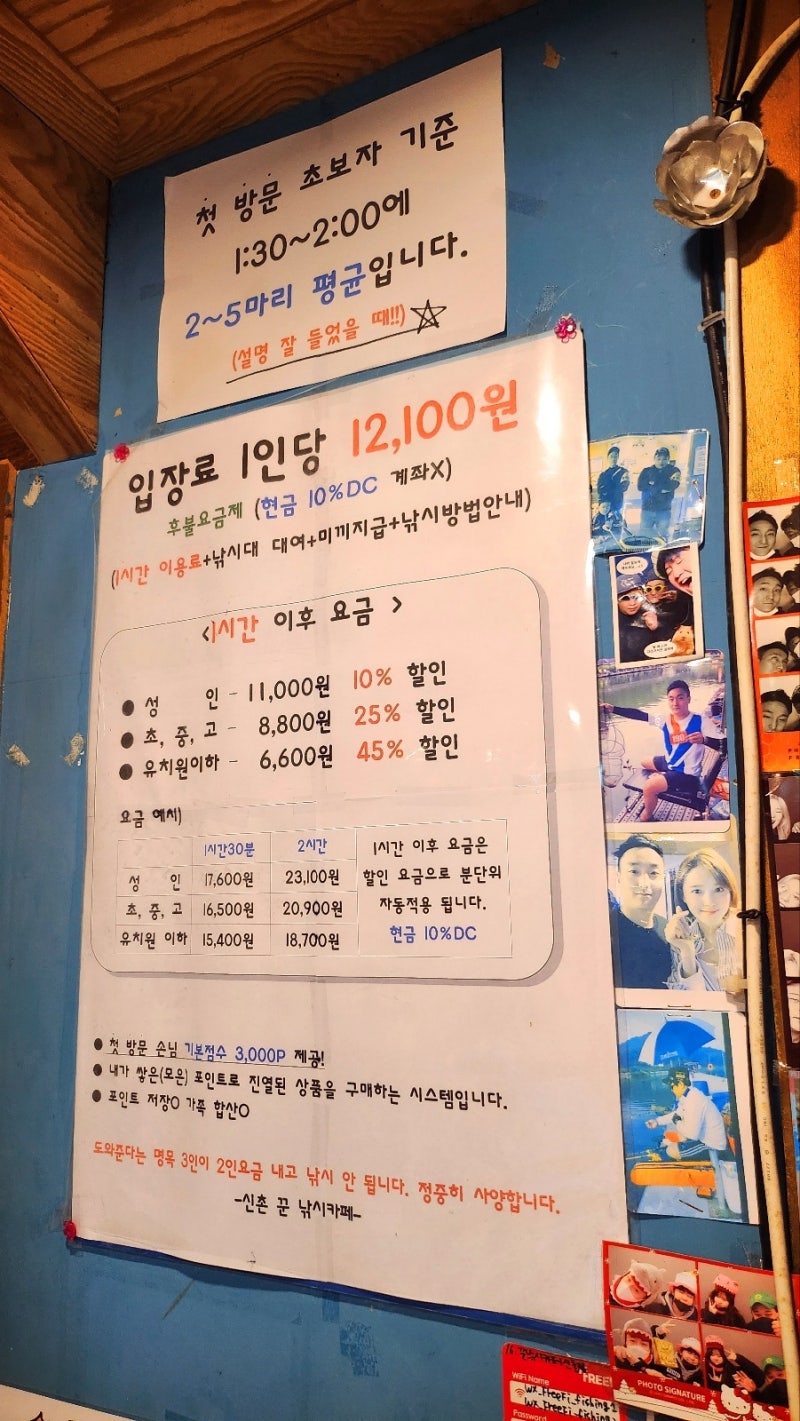 첫 방문 초보자 기준
1:30~2:00에
2~5마리 평균입니다.
(설명 잘 들었을 때!!)☆
입장료 1인당 12,100원
후불요금제 (현금 10%DC 계좌X)
(1시간 이용료+낚시대 대여+미끼지급+낚시방법안내)
<1시간 이후 요금 >
● 성 인 - 11,000원 10% 할인
● 초, 중, 고 - 8,800원 25% 할인
● 유치원이하 - 6,600원 45% 할인
요금 예시)
1시간30분 2시간
성 인 17,600원 23,100원
초, 중, 고 16,500원 20,900원
유치원 이하 15,400원 18,700원
1시간 이후 요금은
할인 요금으로 분단위
자동적용 됩니다.
현금 10%DC
● 첫 방문 손님 기본점수 3,000P 제공!
● 내가 쌓은(모은) 포인트로 진열된 상품을 구매하는 시스템입니다.
● 포인트 저장O 가족 합산O
도와준다는 명목 3인이 2인요금 내고 낚시 안 됩니다. 정중히 사양합니다.
-신촌 꾼 낚시카페-
PHOTO SIGNATURE
FREE
WiFi Name
Password